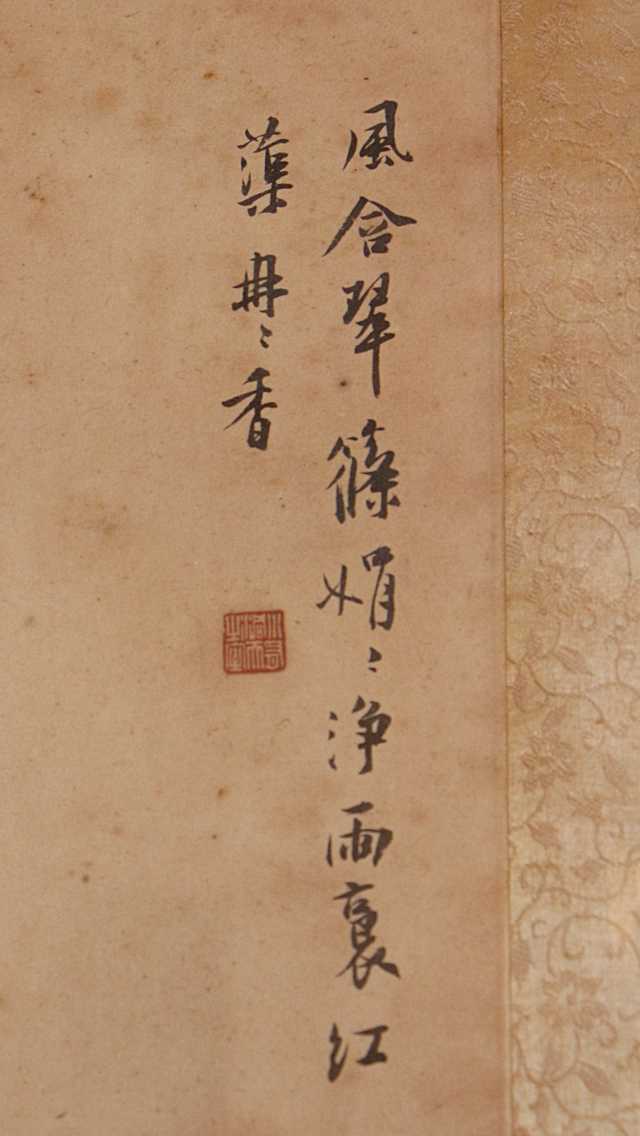 風含翠篠娟〻淨雨裛紅
蕖冉〻香